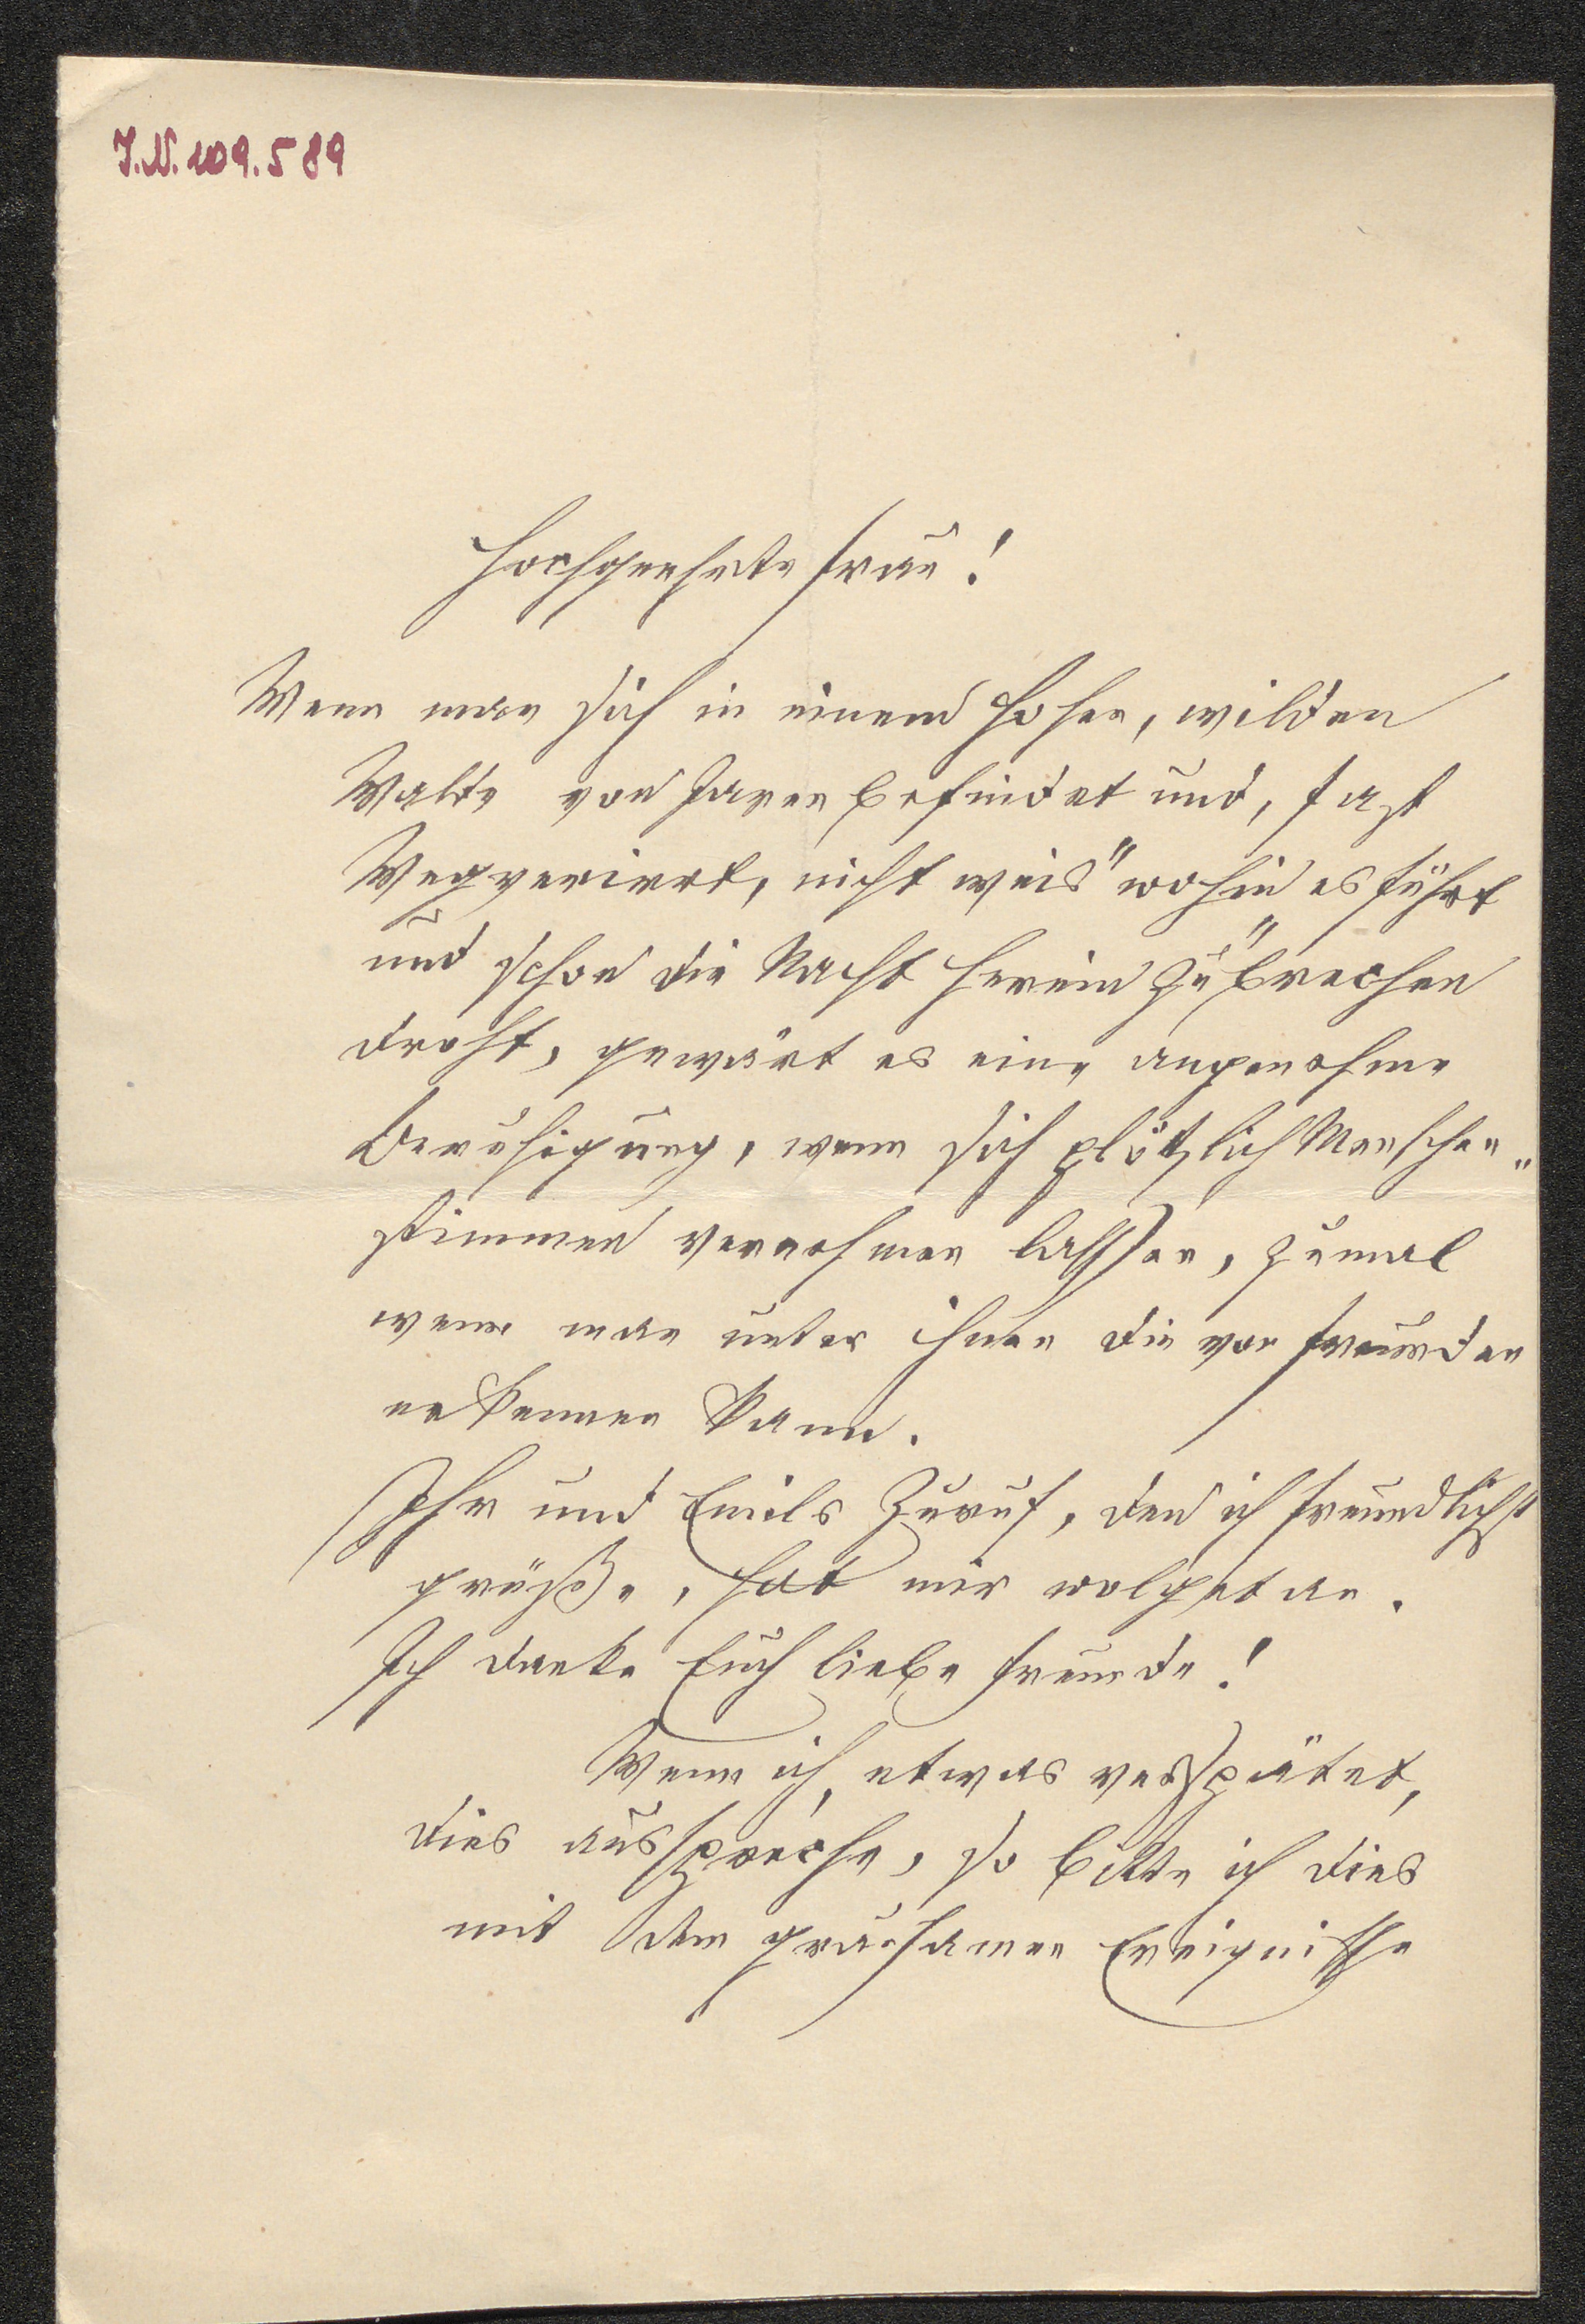 J.N. 109.589
Hochgeehrte Frau!
Wenn man sich in einem hohen, wilden
Walde von Jaren befindet und, fast
Wegverirrt, nicht weis "wohin es führt"
und schon die Nacht herein zu brechen
droht, gewärt es eine angenehme
Beruhigung, wenn sich plötzlich Menschen„
stimmen vernehmen lassen, zumal
wenn man unter ihnen die von Freunden
erkennen kann.
Ihr und Emils Zuruf, den ich freundlichst
grüße, hat mir wolgetan.
Ich danke Euch liebe Freunde!
Wenn ich, etwas verspätet,
dies ausspreche, so bitte ich dies
mit dem grausamen Ereignisse